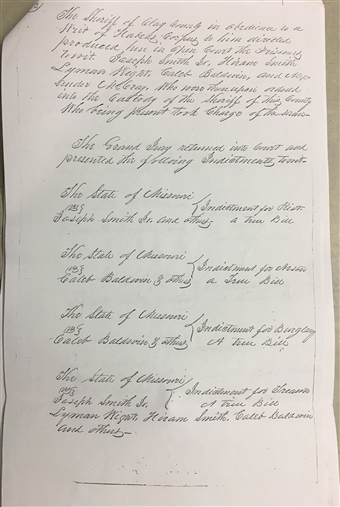 The Sheriff of Clay County in obedience to a
Writ of Habeas Corpus to him directed
produced here in Open Court the Prisoners
towit. Joseph Smith Jr. Hiram Smith
Lyman Wight, Caleb Baldwin, and Alex
ander McCray. Who were thereupon ordered
into the Custody of the Sheriff of this County
Who being present took Charge of the same—
The Grand Jury returned into Court and
presented the following Indictments towit.
The State of Missouri
vs }
Indictment for Riot.
Joseph Smith Jr. and others— a true Bill
The State of Missouri
vs }
Indictment for Arson
Caleb Baldwin & others a True Bill
The State of Missouri
vs }
Indictment for Burglary
Caleb Baldwin & others A true Bill
The State of Missouri
vs }
Indictment for Treason
Joseph Smith Jr. A true Bill
Lyman Wight, Hiram Smith, Caleb Baldwin
and others—